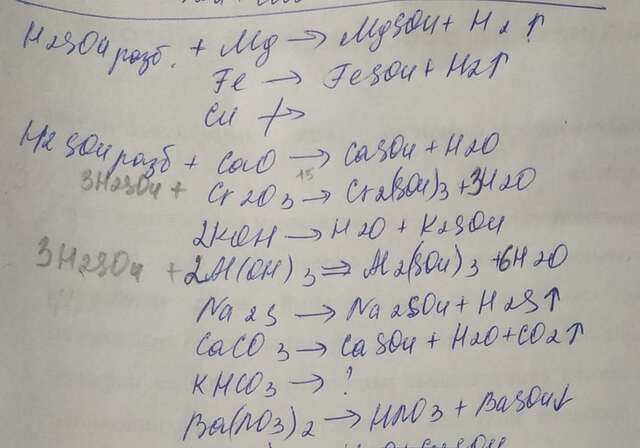 H2SO4 разб. + Mg → MgSO4 + H2↑
Fe → FeSO4 + H2↑
Cu ↛
H2SO4 разб + CaO → CaSO4 + H2O
3H2SO4 + Cr2O3 → Cr2(SO4)3 + 3H2O
2KOH → H2O + K2SO4
3H2SO4 + 2Al(OH)3 ⇒ Al2(SO4)3 + 6H2O
Na2S → Na2SO4 + H2S↑
CaCO3 → CaSO4 + H2O + CO2↑
KHCO3 → ?
Ba(NO3)2 → HNO3 + BaSO4↓